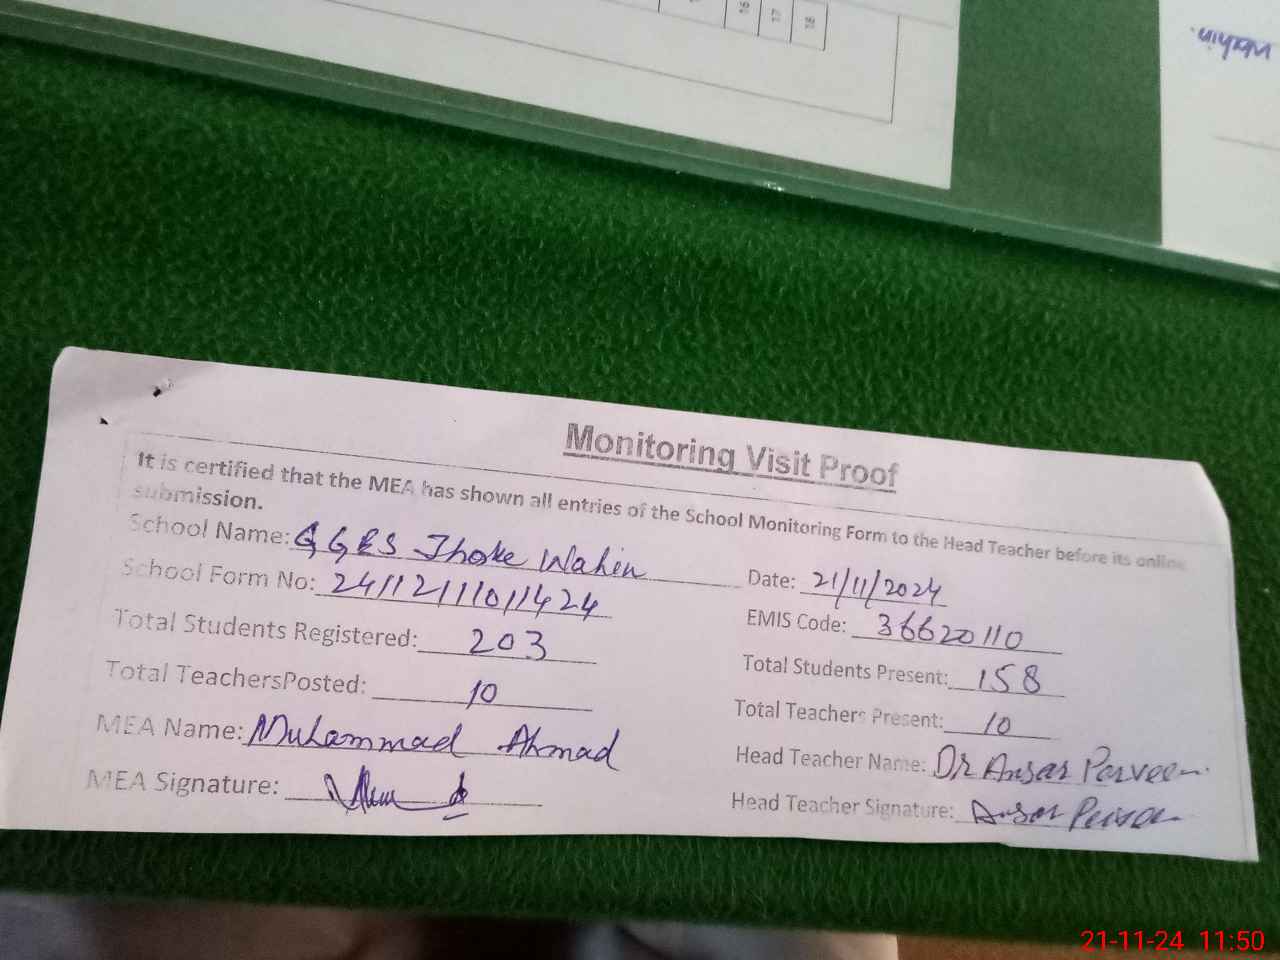 16 17 18
Wahin.
Monitoring Visit Proof
It is certified that the MEA has shown all entries of the School Monitoring Form to the Head Teacher before its online
submission.
School Name: GGES Jhoke Wahin Date: 21/11/2024
School Form No: 24112111011424 EMIS Code: 36620110
Total Students Registered: 203 Total Students Present: 158
Total TeachersPosted: 10 Total Teachers Present: 10
MEA Name: Muhammad Ahmad Head Teacher Name: Dr Ansar Parveen
MEA Signature: Head Teacher Signature: Ansar Perveen
21-11-24 11:50